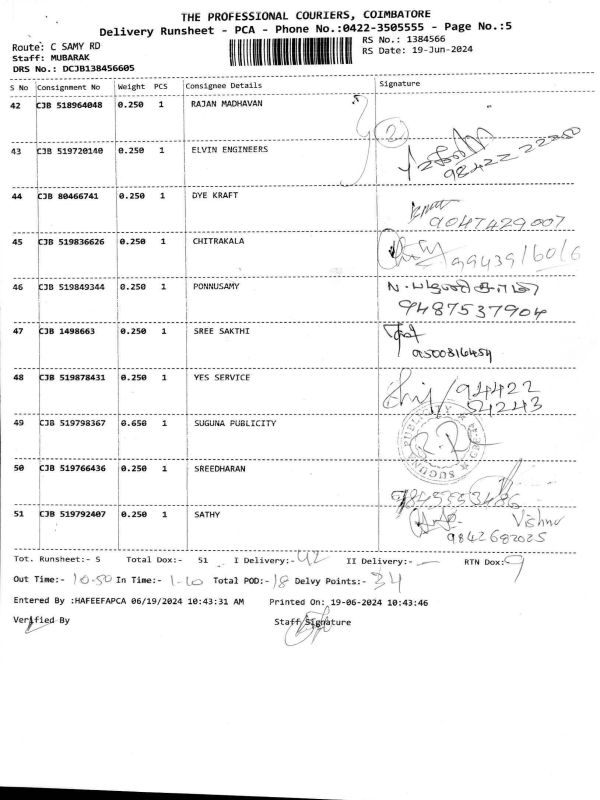 THE PROFESSIONAL COURIERS, COIMBATORE
Delivery Runsheet - PCA - Phone No.:0422-3505555 - Page No.:5
Route: C SAMY RD
RS No.: 1384566
Staff: MUBARAK
RS Date: 19-Jun-2024
DRS No.: DCJB138456605
S No Consignment No Weight PCS Consignee Details Signature
42 CJB 518964048 0.250 1 RAJAN MADHAVAN
2
43 CJB 519720140 0.250 1 ELVIN ENGINEERS
98422 22250
44 CJB 80466741 0.250 1 DYE KRAFT
9047429007
45 CJB 519836626 0.250 1 CHITRAKALA
9943916016
46 CJB 519849344 0.250 1 PONNUSAMY
9487537904
47 CJB 1498663 0.250 1 SREE SAKTHI
9500816454
48 CJB 519878431 0.250 1 YES SERVICE
94422
54243
49 CJB 519798367 0.650 1 SUGUNA PUBLICITY
50 CJB 519766436 0.250 1 SREEDHARAN
51 CJB 519792407 0.250 1 SATHY
Vishnu
9842682025
Tot. Runsheet:- 5 Total Dox:- 51 I Delivery:- 42 II Delivery:- — RTN Dox:- 9
Out Time:- 10.50 In Time:- 1.10 Total POD:- 18 Delvy Points:- 34
Entered By :HAFEEFAPCA 06/19/2024 10:43:31 AM Printed On: 19-06-2024 10:43:46
Verified By Staff Signature